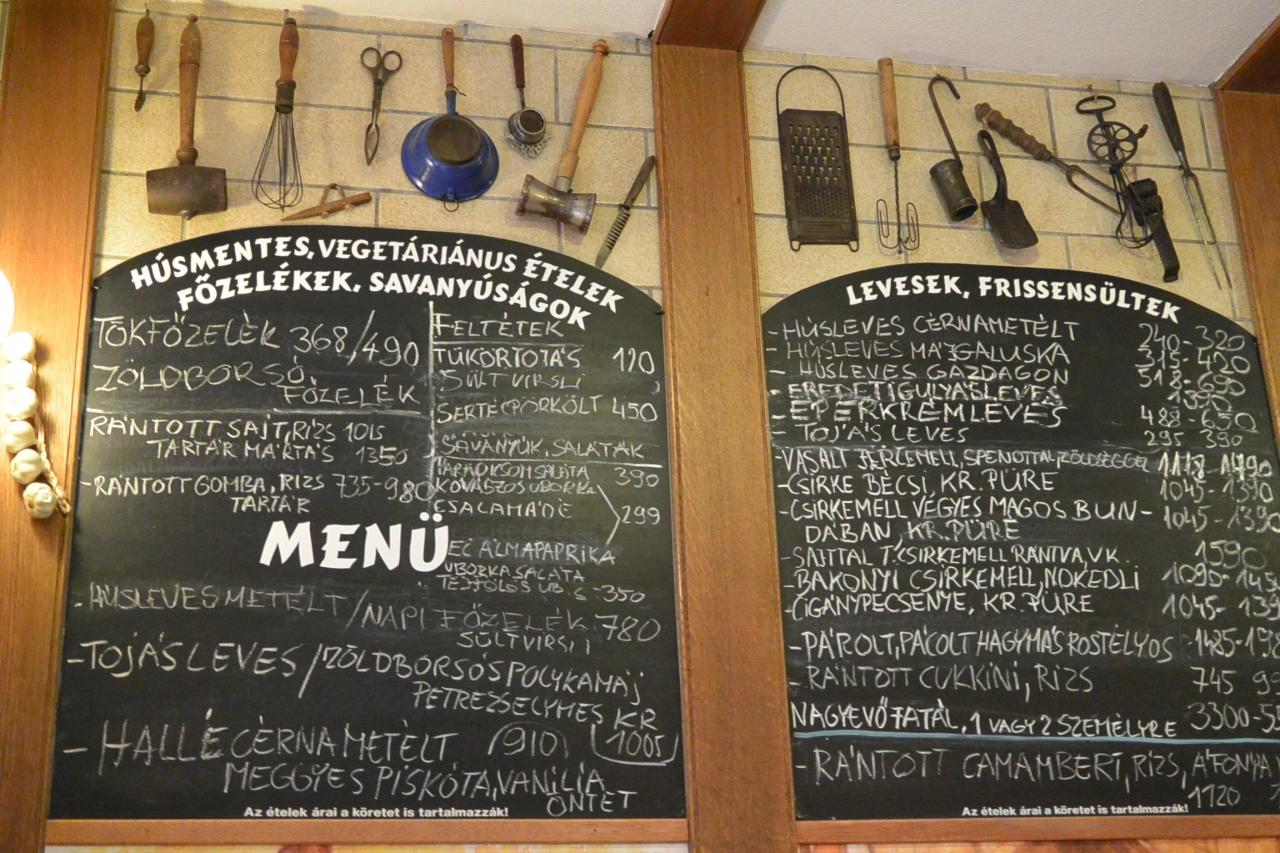 HÚSMENTES, VEGETÁRIÁNUS ÉTELEK
FŐZELÉKEK, SAVANYÚSÁGOK
TÖKFŐZELÉK 368/490
ZÖLDBORSÓ
FŐZELÉK
RÁNTOTT SAJT, RIZS 1015
TARTÁR MÁRTÁS 1350
-RÁNTOTT GOMBA, RIZS 735-980
TARTÁR
FELTÉTEK
TÜKÖRTOJÁS 120
SÜLT VIRSLI
SERTÉSPÖRKÖLT 450
SAVANYÚK, SALÁTÁK
PARADICSOMSALÁTA 390
KOVÁSZOS UBORKA
CSALAMÁDÉ 299
ALMAPAPRIKA
UBORKA SALÁTA
TEJFÖLÖS UB. S -350
MENÜ
-HÚSLEVES METÉLT/NAPI FŐZELÉK 780
SÜLTVIRSLI
-TOJÁSLEVES/ZÖLDBORSÓS PULYKAMÁJ
PETREZSELYMES KR
-HALLÉ CÉRNAMETÉLT 910 1005
MEGGYES PISKÓTA, VANÍLIA
ÖNTET
Az ételek árai a köretet is tartalmazzák!
LEVESEK, FRISSENSÜLTEK
-HÚSLEVES CÉRNAMETÉLT 240-320
-HÚSLEVES MÁJGALUSKA 315-420
-HÚSLEVES GAZDAGON 518-690
-EREDETI GULYÁSLEVES 1390
-EPERKRÉMLEVES 488-650
-TOJÁSLEVES 295 390
-VASALT JÉRCEMELL, SPENÓTTAL, ZÖLDSÉGGEL
-CSIRKE BÉCSI, KR. PÜRÉ 1045-1390
-CSIRKEMELL VÉGYES MAGOS BUN-
DÁBAN, KR. PÜRÉ 1045-1390
-SAJTTAL T. CSIRKEMELL RÁNTVA V.K. 1590
-BAKONYI CSIRKEMELL, NOKEDLI 1090-1450
-CIGÁNYPECSENYE, KR. PÜRÉ 1045-139
-PÁROLT, PÁCOLT HAGYMÁS ROSTÉLYOS 1485-19
-RÁNTOTT CUKKINI, RIZS 745 99
NAGYEVŐ TÁTÁL, 1 VAGY 2 SZEMÉLYRE 3300-5
-RÁNTOTT CAMAMBERT, RIZS, ÁFONYA
1120
Az ételek árai a köretet is tartalmazzák!